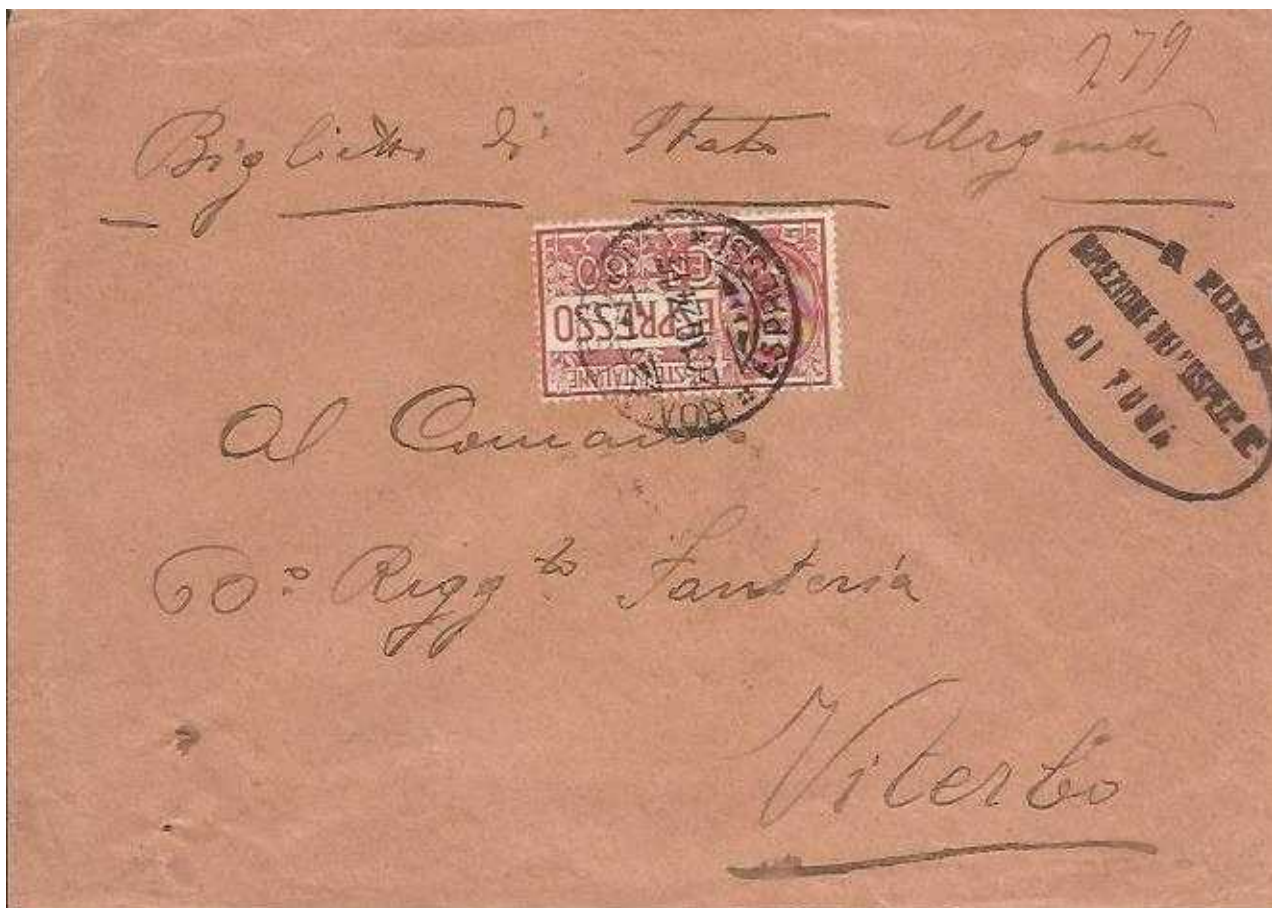 279
Biglietto di Stato Urgente
POSTE ITALIANE
ESPRESSO
ESPRESSI
ROMA
R POSTA
DIREZIONE DELL'OSPED.
DI
Al Comando
60º Regg to Fanteria
Viterbo